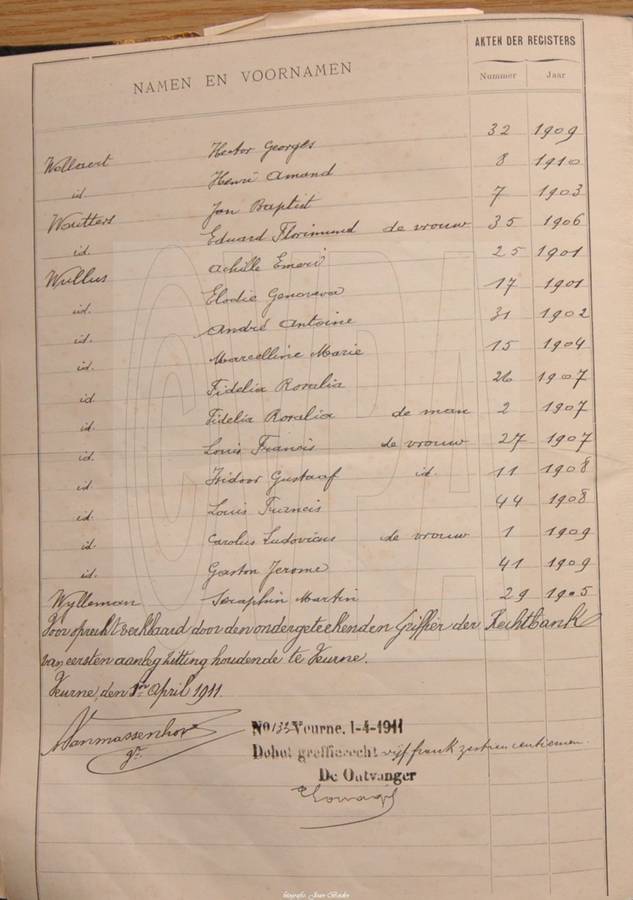 AKTEN DER REGISTERS
NAMEN EN VOORNAMEN
Nummer Jaar
Wollaert Hector Georges 32 1909
id. Henri Amand 8 1910
Woutters Jan Baptist 7 1903
id. Eduard Florimund de vrouw 35 1906
Wullus Achille Emeri 25 1901
id. Elodie Genoveva 17 1901
id. André Antoine 31 1902
id. Marcelline Marie 15 1904
id. Fidelia Rosalia 26 1907
id. Fidelia Rosalia de man 2 1907
id. Louis Francis de vrouw 27 1907
id Isidoor Gustaaf id. 11 1908
id. Louis Francis 44 1908
id. Carolus Ludovicus de vrouw 1 1909
id. Gaston Jerome 41 1909
Wylleman Seraphin Martin 29 1905
Voor oprecht verklaard door den ondergeteekenden Griffier der Rechtbank
van eersten aanleg zitting houdende te Veurne.
Veurne, den 1en April 1911.
Vanmassenhove
gr.
No 133 Veurne, 1-4-1911
Debet greffierecht vijf frank zestien centiemen.
De Ontvanger